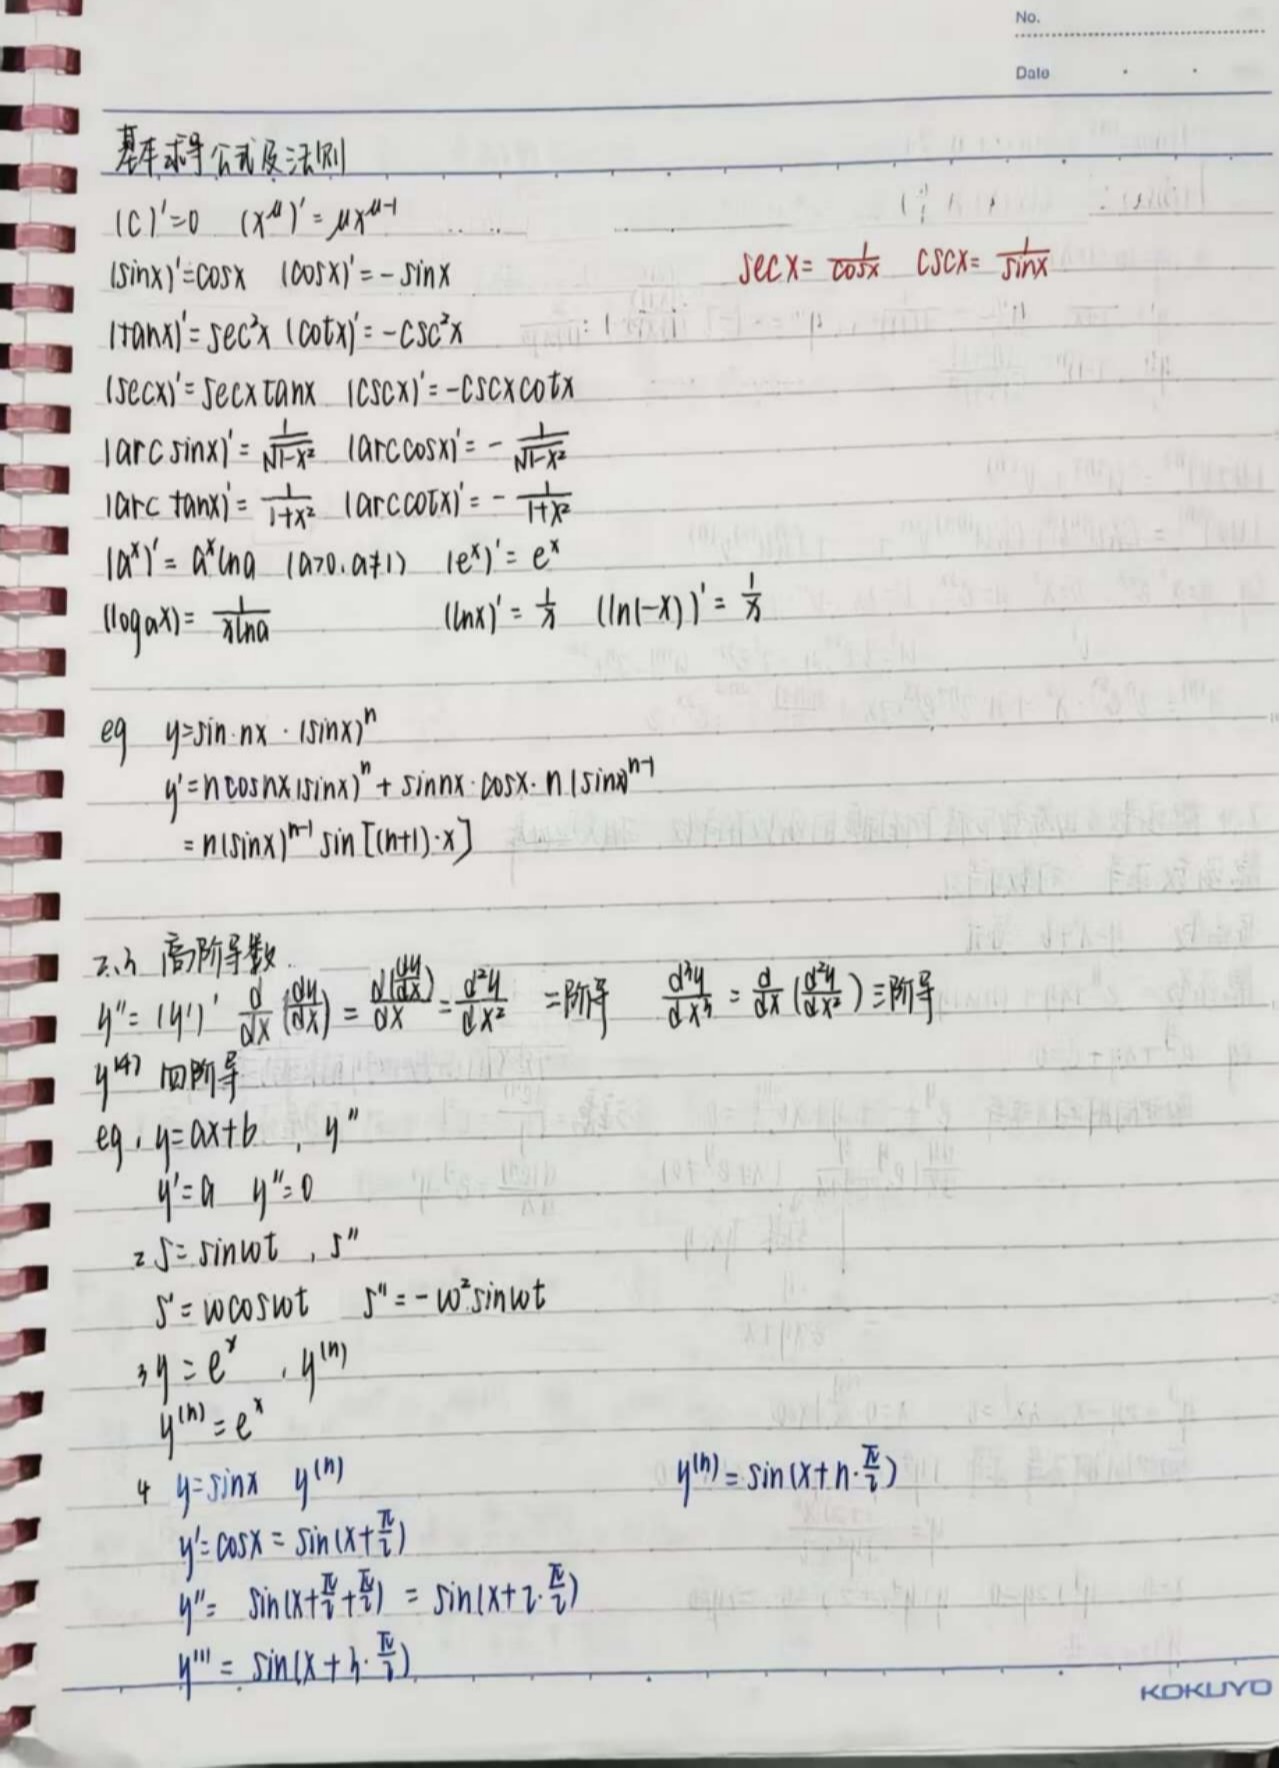 No.
Date
基本求导公式及法则
(C)'=0 (x^μ)'=μx^{μ-1}
(sinx)'=cosx (cosx)'=-sinx secx=1/cosx cscx=1/sinx
(tanx)'=sec²x (cotx)'=-csc²x
(secx)'=secxtanx (cscx)'=-cscxcotx
(arcsinx)'=1/√(1-x²) (arccosx)'=-1/√(1-x²)
(arctanx)'=1/(1+x²) (arccotx)'=-1/(1+x²)
(a^x)'=a^x lna (a>0,a≠1) (e^x)'=e^x
(log_a x)=1/(xlna) (lnx)'=1/x (ln(-x))'=1/x
eg y=sin·nx·(sinx)^n
y'=ncosnx(sinx)^n+sinnx·cosx·n(sinx)^{n-1}
=n(sinx)^{n-1} sin[(n+1)·x]
2.3 高阶导数
y''=(y')' d/dx(dy/dx)=d(dy/dx)/dx=d²y/dx² 二阶导 d³y/dx³=d/dx(d²y/dx²) 三阶导
y^(4) 四阶导
eg 1 y=ax+b , y''
y'=a y''=0
2 s=sinωt , s''
s'=ωcosωt s''=-ω²sinωt
3 y=e^x , y^(n)
y^(n)=e^x
4 y=sinx y^(n) y^(n)=sin(x+n·π/2)
y'=cosx=sin(x+π/2)
y''= sin(x+π/2+π/2) = sin(x+2·π/2)
y'''= sin(x+3·π/2)
KOKUYO